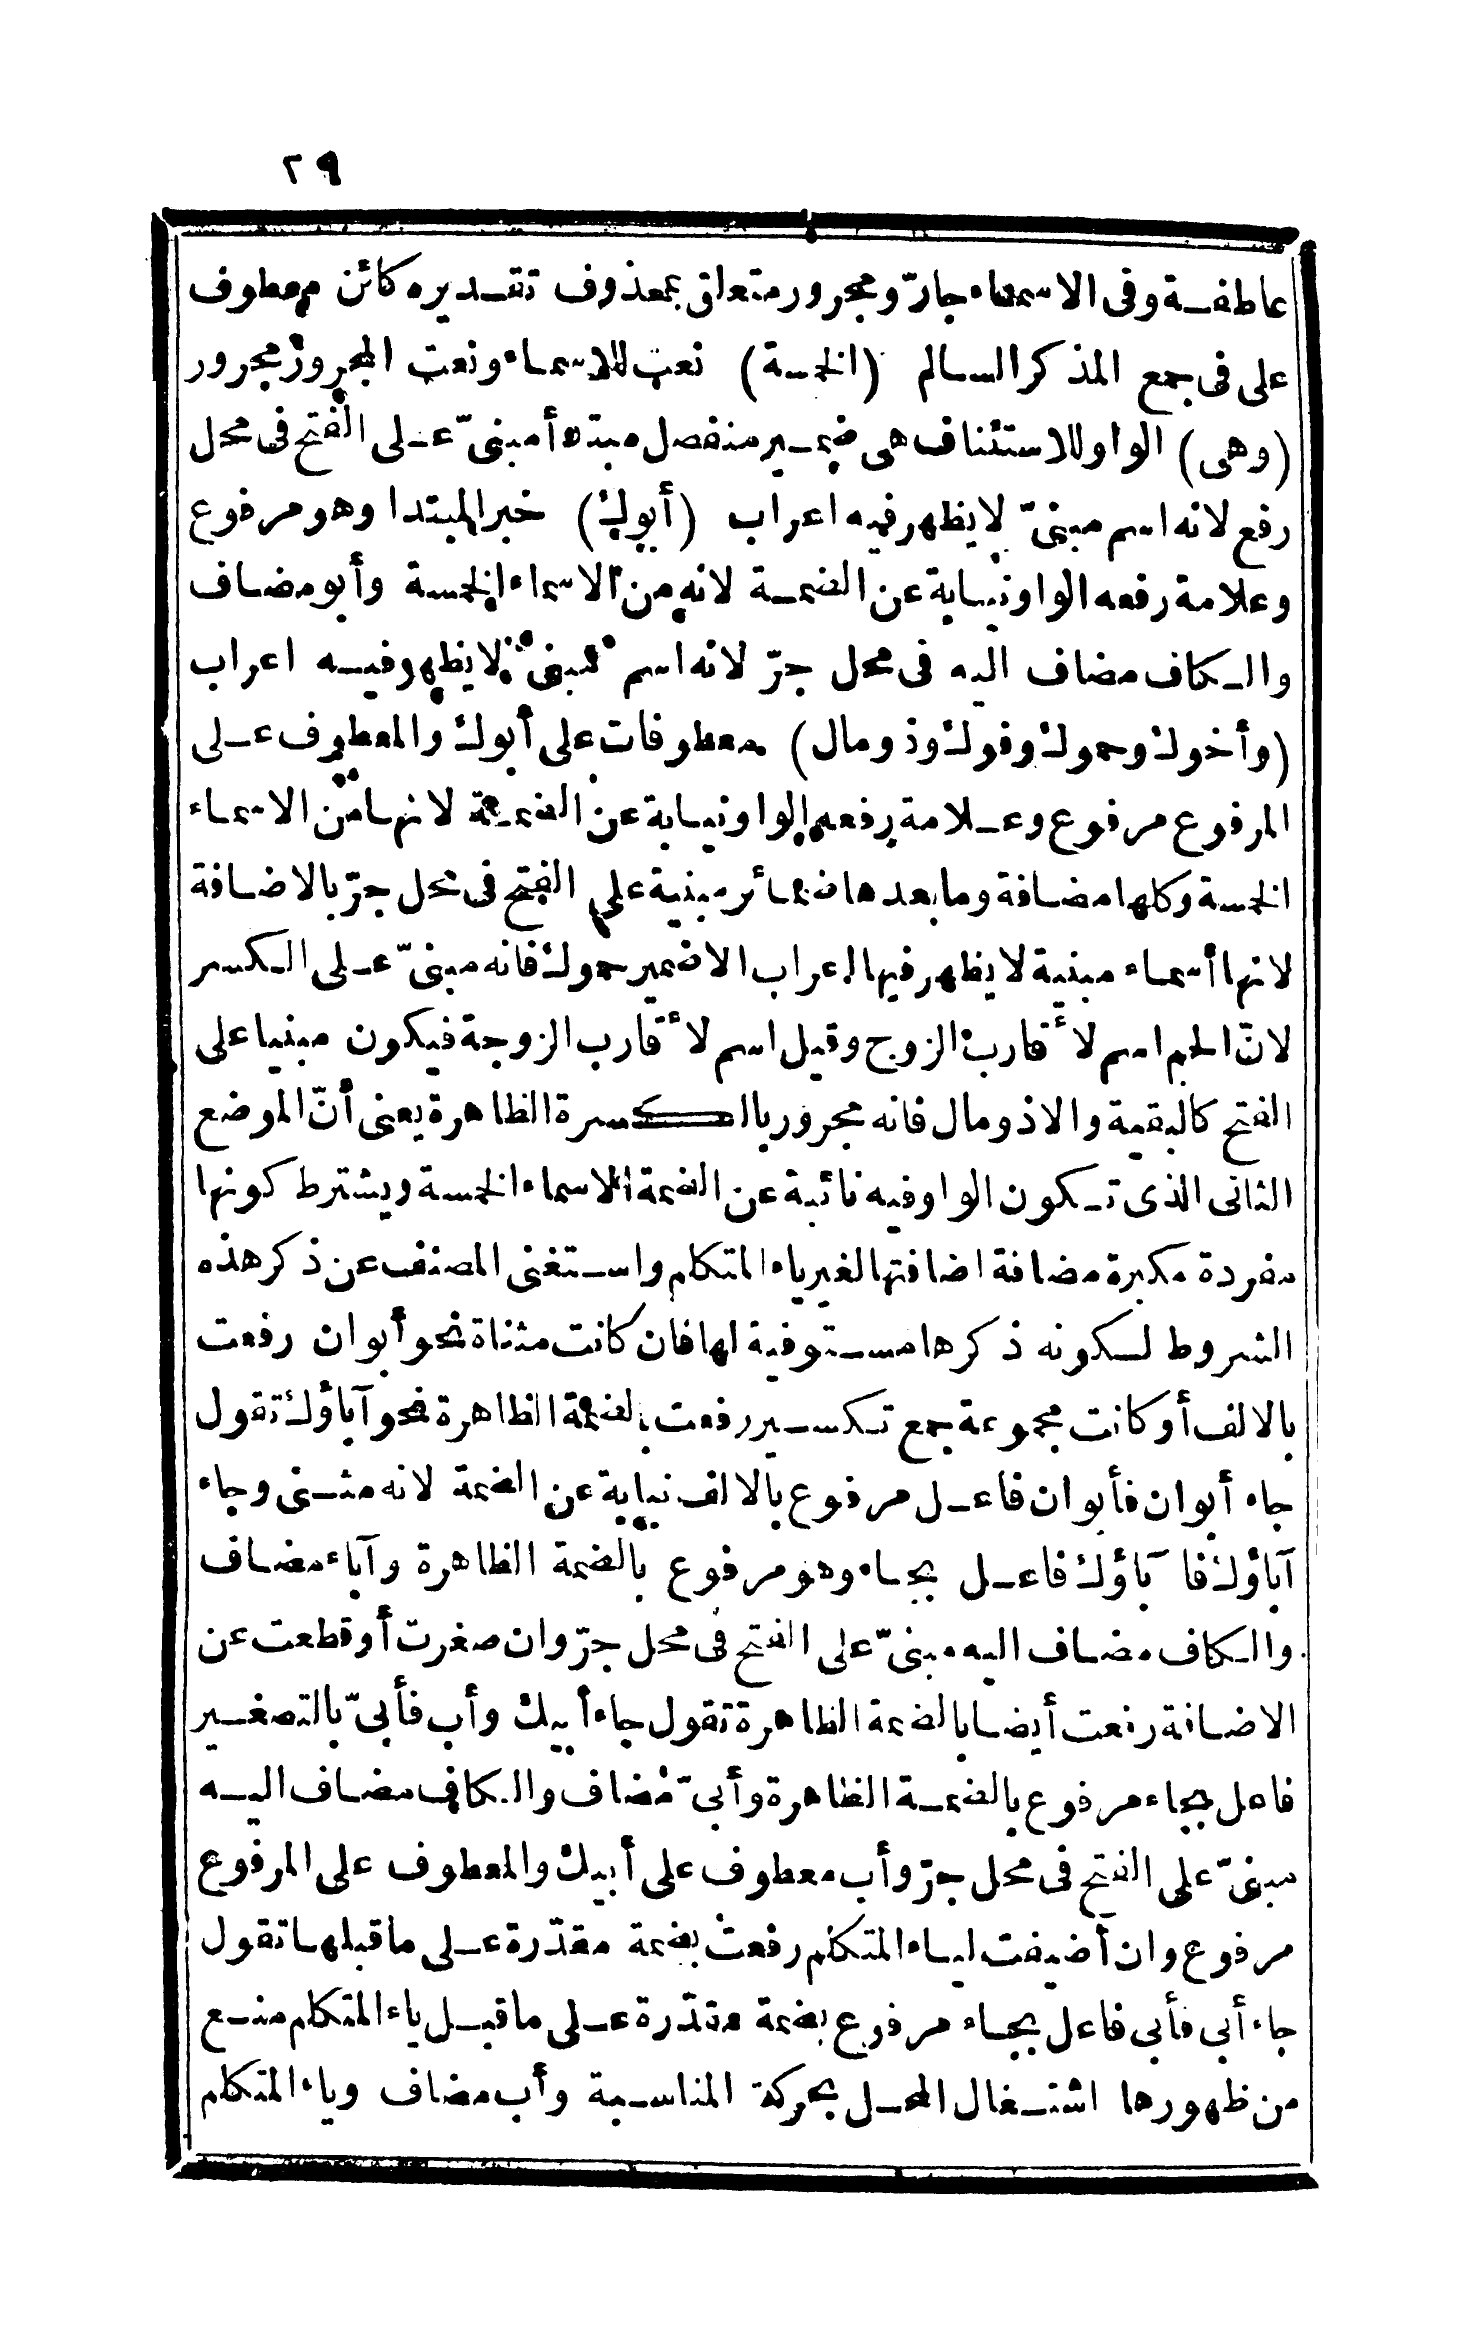 ٢٩
عاطفة وفى الاسماء جارّ ومجرور متعلق بمحذوف تقديره كائن معطوف
على فى جمع المذكر السالم (الخمسة) نعت للاسماء ونعت المجرور مجرور
(وهى) الواو للاستئناف هى ضمير منفصل مبتدأ مبنىّ على الفتح فى محل
رفع لانه اسم مبنىّ لايظهر فيه اعراب (أبوك) خبر المبتدا وهو مرفوع
وعلامة رفعه الواو نيابة عن الضمة لانه من الاسماء الخمسة وأبو مضاف
والكاف مضاف اليه فى محل جرّ لانه اسم مبنىّ لايظهر فيه اعراب
(وأخوك وحموك وفوك وذو مال) معطوفات على أبوك والمعطوف على
المرفوع مرفوع وعلامة رفعه الواو نيابة عن الضمة لانها من الاسماء
الخمسة وكلها مضافة وما بعدها ضمائر مبنية على الفتح فى محل جرّ بالاضافة
لانها أسماء مبنية لايظهر فيها اعراب الاضمير حموك فانه مبنىّ على الكسر
لانّ الحم اسم لأقارب الزوج وقيل اسم لأقارب الزوجة فيكون مبنيا على
الفتح كالبقية والاذو مال فانه مجرور بالكسرة الظاهرة يعنى أنّ الموضع
الثانى الذى تكون الواو فيه نائبة عن الضمة الاسماء الخمسة ويشترط كونها
مفردة مكبرة مضافة اضافتها لغير ياء المتكلم واستغنى المصنف عن ذكر هذه
الشروط لكونه ذكرها مستوفية لها فان كانت مثناة نحو أبوان رفعت
بالالف أو كانت مجموعة جمع تكسير رفعت بالضمة الظاهرة نحو آباؤك تقول
جاء أبوان فأبوان فاعل مرفوع بالالف نيابة عن الضمة لانه مثنى وجاء
آباؤك فآباؤك فاعل بجاء وهو مرفوع بالضمة الظاهرة وآباء مضاف
والكاف مضاف اليه مبنىّ على الفتح فى محل جرّ وان صغرت أو قطعت عن
الاضافة رفعت أيضا بالضمة الظاهرة تقول جاء أبيك وأب فأبىّ بالتصغير
فاعل بجاء مرفوع بالضمة الظاهرة وأبىّ مضاف والكاف مضاف اليه
مبنىّ على الفتح فى محل جرّ وأب معطوف على أبيك والمعطوف على المرفوع
مرفوع وان أضيفت لياء المتكلم رفعت بضمة مقدّرة على ما قبلها تقول
جاء أبى فأبى فاعل بجاء مرفوع بضمة مقدّرة على ما قبل ياء المتكلم منع
من ظهورها اشتغال المحل بحركة المناسبة وأب مضاف وياء المتكلم